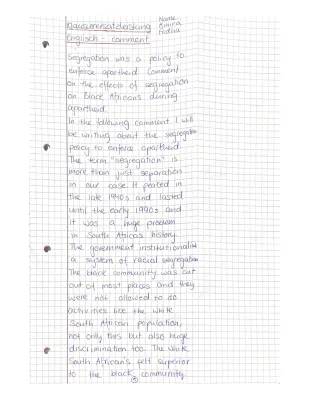 Klausurersatzleistung
Name
Amira
Englisch - comment
Segregation was a policy to
enforce apartheid. Comment
on the effects of segregation
on Black Africans during
apartheid.
In the following comment I will
be writing about the segregation
policy to enforce apartheid.
The term "segregation" is
more than just separation
in our case. It peaked in
the late 1940s and lasted
until the early 1990s and
it was a huge problem
in South Africas history.
The government institutionalist
a system of racial segregation
The black community was cut
out of most places and they
were not allowed to do
activities like the white
South African population,
not only this but also huge
discrimination too. The white
South African's felt superior
to the black community.